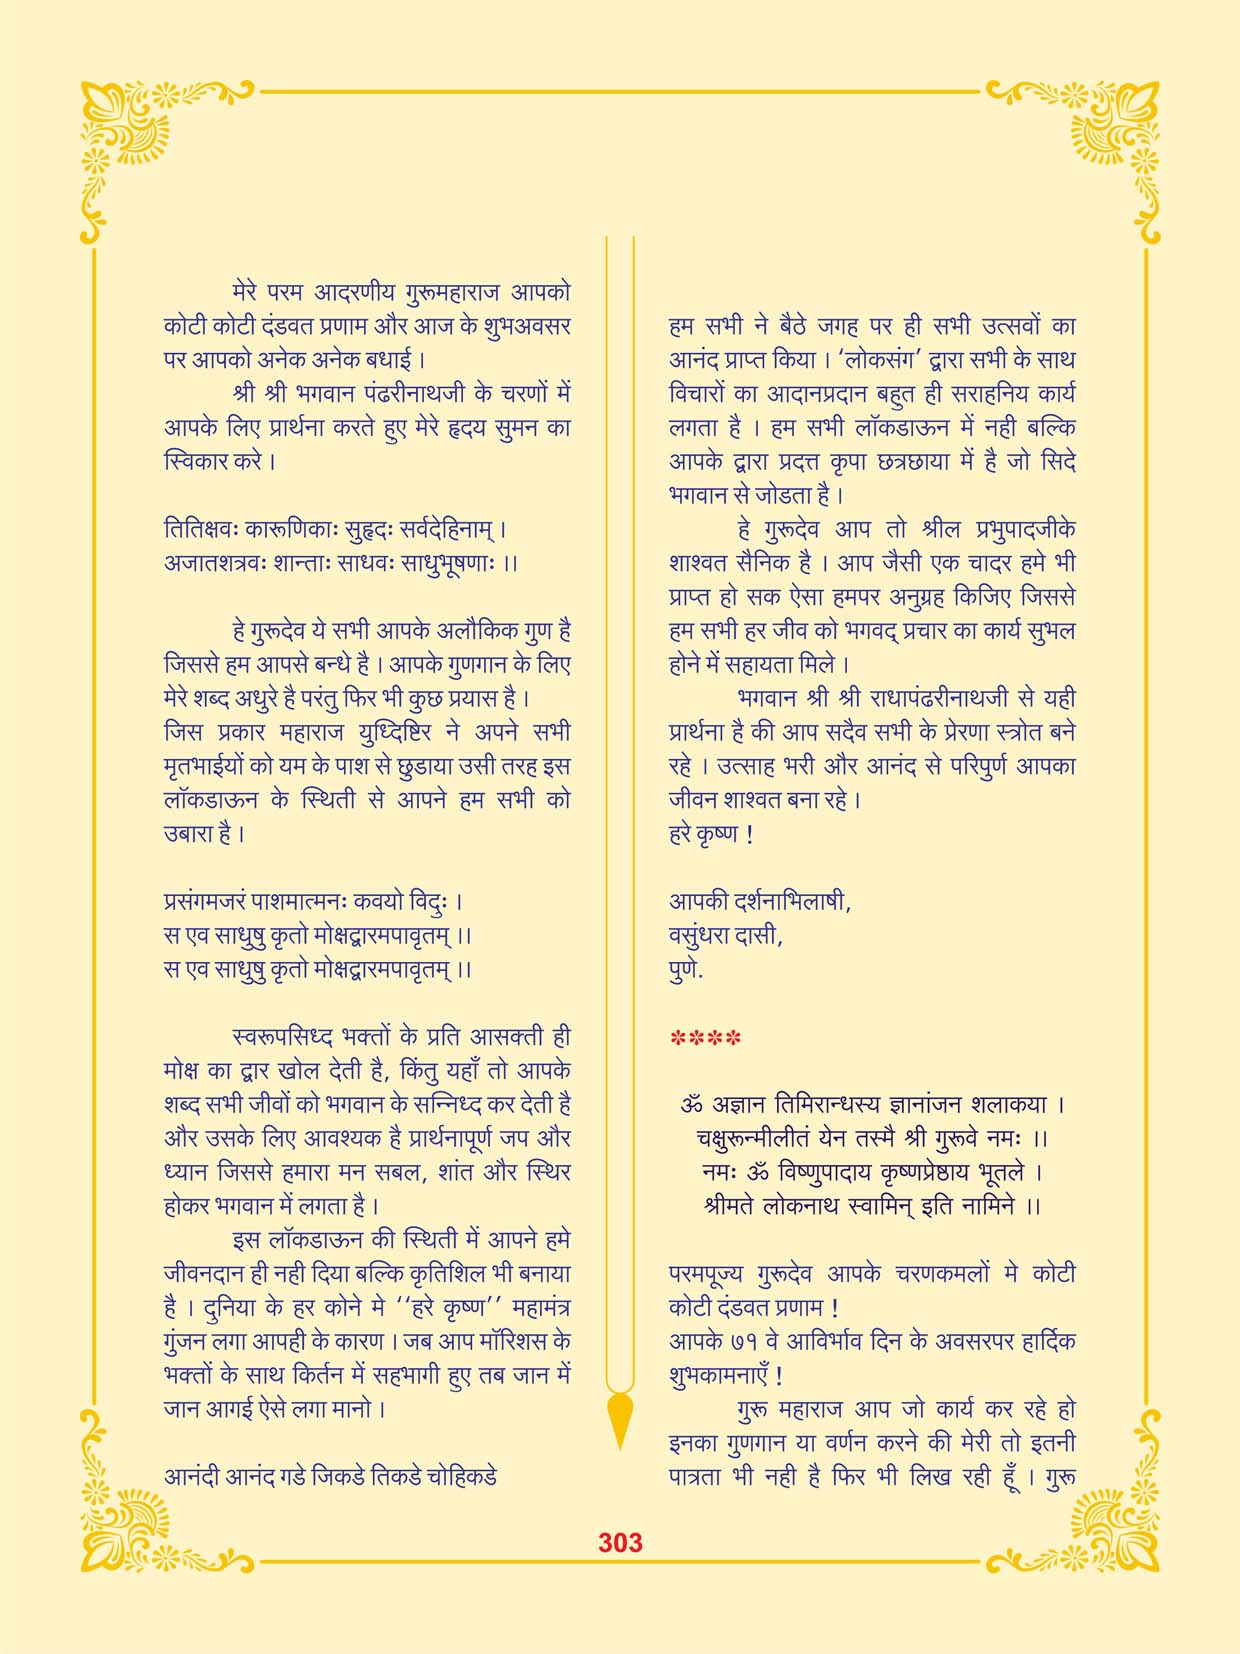 मेरे परम आदरणीय गुरूमहाराज आपको
कोटी कोटी दंडवत प्रणाम और आज के शुभअवसर
पर आपको अनेक अनेक बधाई ।
श्री श्री भगवान पंढरीनाथजी के चरणों में
आपके लिए प्रार्थना करते हुए मेरे हृदय सुमन का
स्विकार करे ।
तितिक्षवः कारूणिकाः सुहृदः सर्वदेहिनाम् ।
अजातशत्रवः शान्ताः साधवः साधुभूषणाः ।।
हे गुरूदेव ये सभी आपके अलौकिक गुण है
जिससे हम आपसे बन्धे है । आपके गुणगान के लिए
मेरे शब्द अधुरे है परंतु फिर भी कुछ प्रयास है ।
जिस प्रकार महाराज युध्दिष्टिर ने अपने सभी
मृतभाईयों को यम के पाश से छुडाया उसी तरह इस
लॉकडाऊन के स्थिती से आपने हम सभी को
उबारा है ।
प्रसंगमजरं पाशमात्मनः कवयो विदुः ।
स एव साधुषु कृतो मोक्षद्वारमपावृतम् ।।
स एव साधुषु कृतो मोक्षद्वारमपावृतम् ।।
स्वरूपसिध्द भक्तों के प्रति आसक्ती ही
मोक्ष का द्वार खोल देती है, किंतु यहाँ तो आपके
शब्द सभी जीवों को भगवान के सन्निध्द कर देती है
और उसके लिए आवश्यक है प्रार्थनापूर्ण जप और
ध्यान जिससे हमारा मन सबल, शांत और स्थिर
होकर भगवान में लगता है ।
इस लॉकडाऊन की स्थिती में आपने हमे
जीवनदान ही नही दिया बल्कि कृतिशिल भी बनाया
है । दुनिया के हर कोने मे ‘‘हरे कृष्ण’’ महामंत्र
गुंजन लगा आपही के कारण । जब आप मॉरिशस के
भक्तों के साथ किर्तन में सहभागी हुए तब जान में
जान आगई ऐसे लगा मानो ।
आनंदी आनंद गडे जिकडे तिकडे चोहिकडे
हम सभी ने बैठे जगह पर ही सभी उत्सवों का
आनंद प्राप्त किया । ‘लोकसंग’ द्वारा सभी के साथ
विचारों का आदानप्रदान बहुत ही सराहनिय कार्य
लगता है । हम सभी लॉकडाऊन में नही बल्कि
आपके द्वारा प्रदत्त कृपा छत्रछाया में है जो सिदे
भगवान से जोडता है ।
हे गुरूदेव आप तो श्रील प्रभुपादजीके
शाश्वत सैनिक है । आप जैसी एक चादर हमे भी
प्राप्त हो सक ऐसा हमपर अनुग्रह किजिए जिससे
हम सभी हर जीव को भगवद् प्रचार का कार्य सुभल
होने में सहायता मिले ।
भगवान श्री श्री राधापंढरीनाथजी से यही
प्रार्थना है की आप सदैव सभी के प्रेरणा स्त्रोत बने
रहे । उत्साह भरी और आनंद से परिपुर्ण आपका
जीवन शाश्वत बना रहे ।
हरे कृष्ण !
आपकी दर्शनाभिलाषी,
वसुंधरा दासी,
पुणे.
****
ॐ अज्ञान तिमिरान्धस्य ज्ञानांजन शलाकया ।
चक्षुरून्मीलीतं येन तस्मै श्री गुरूवे नमः ।।
नमः ॐ विष्णुपादाय कृष्णप्रेष्ठाय भूतले ।
श्रीमते लोकनाथ स्वामिन् इति नामिने ।।
परमपूज्य गुरूदेव आपके चरणकमलों मे कोटी
कोटी दंडवत प्रणाम !
आपके ७१ वे आविर्भाव दिन के अवसरपर हार्दिक
शुभकामनाएँ !
गुरू महाराज आप जो कार्य कर रहे हो
इनका गुणगान या वर्णन करने की मेरी तो इतनी
पात्रता भी नही है फिर भी लिख रही हूँ । गुरू
303